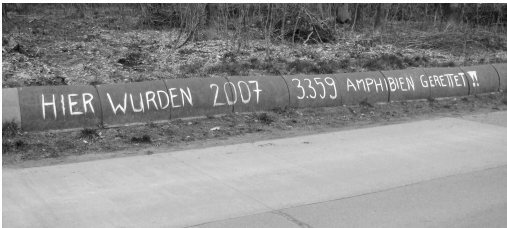 HIER WURDEN 2007 3.359 AMPHIBIEN GERETTET!!